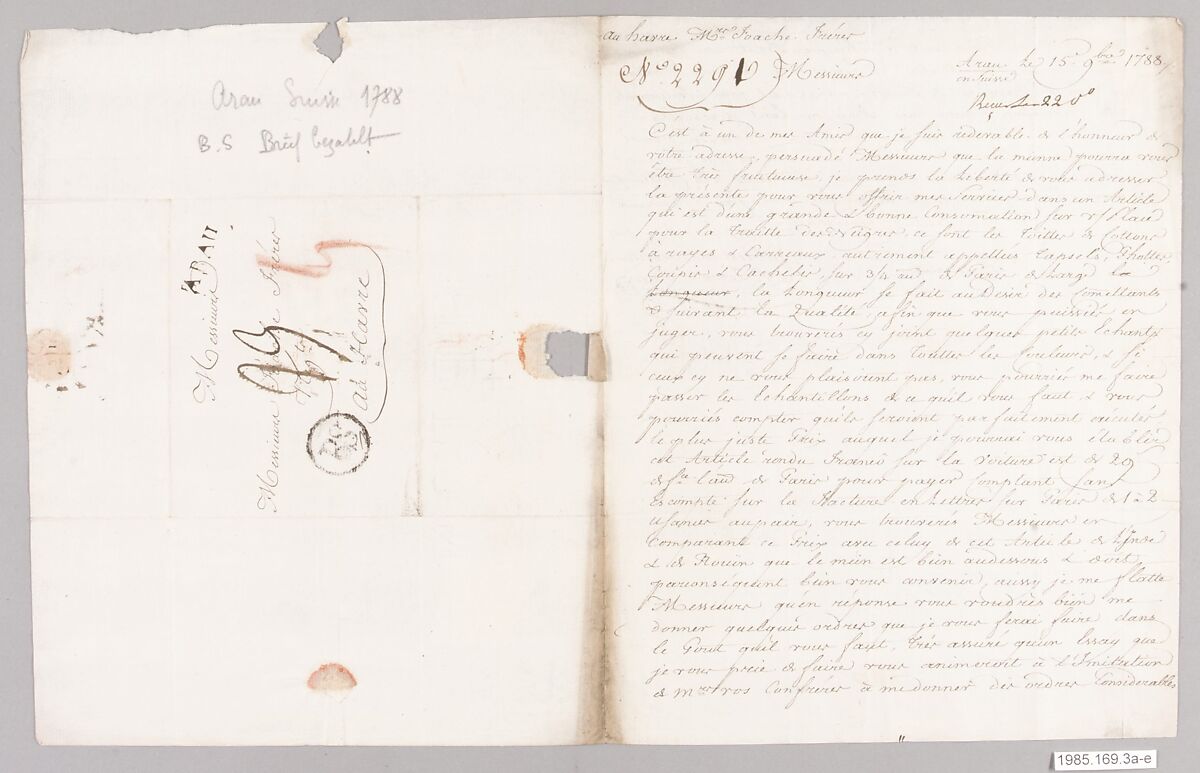 Arau Suisse 1788
B.S Brief bezahlt
ARAU
Messieurs
Messieurs Foache Frères
au Havre
au havre Mrs Foache Frères
No 2291 Messieurs
Arau Le 15e 9bre 1788
en Suisse
Reçu Le 22 do
C'est à un de mes Amis que je suis redevable de l'honneur de
vôtre adresse, persuadé Messieurs que la mienne pourra vous
être très fructueuse je prends la Liberté de vous adresser
la présente pour vous offrir mes Services dans un Article
qui est d'une grande & bonne Consomation sur v/ Place
pour la Traitte des Nègres ce sont les Toilles de Cottons
à rayes & Carreaux autrement appellés Tapsels, Photter
Coupis & Cachelis sur 3/4 au de Paris de Large la
Longueur, la Longueur se fait au desir des Comettants
& suivant la Qualité, afin que vous puissiés en
juger, vous trouverés cy joint quelques petits Echants
qui peuvent se faire dans toutes les Couleurs, & si
ceux cy ne vous plaisoient pas, vous pourriés me faire
passer les Echantillons de ce qu'il vous faut & vous
pourriés compter qu'ils seroient parfaitement éxécutés
le plus juste Prix auquel je pourrai vous établir
cet Article rendu Franco sur la voiture est de 29
de Fce L'aud de Paris pour payer Comptant sans
Escompte sur la Facture en Lettres sur Paris de 1 à 2
usances au pair, vous trouverés Messieurs en
Comparant ce Prix avec celuy de cet Article de l'Jnde
& de Rouen que le mien est bien audessous & doit
parconséquent bien vous convenir, aussy je me flatte
Messieurs qu'en réponse vous voudrés bien me
donner quelques ordres que je vous ferai faire dans
le Gout qu'il vous faut, très assuré qu'un Essay que
je vous prie de faire vous animeroit à l'Jmittation
de Mrs vos Confrères à me donner des ordres Considerables
1985.169.3a-e